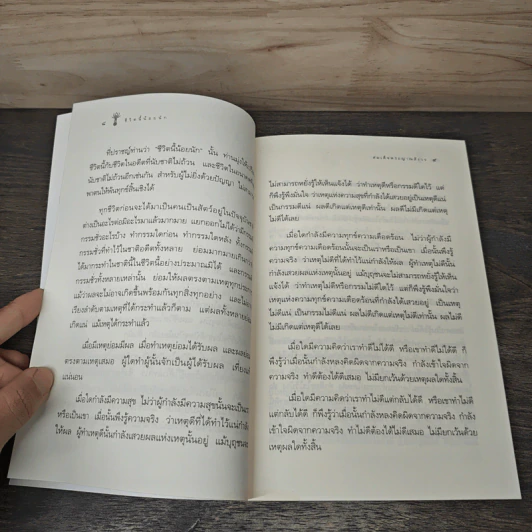 ๘ ชีวิตนี้น้อยนัก
ที่ปราชญ์ท่านว่า "ชีวิตนี้น้อยนัก" นั้น ท่านมุ่งให้
ชีวิตนี้กับชีวิตในอดีตที่นับชาติไม่ถ้วน และชีวิตใน
นับชาติไม่ถ้วนอีกเช่นกัน สำหรับผู้ไม่ยิ่งด้วยปัญญา ไม่
พาตนให้พ้นทุกข์สิ้นเชิงได้
ทุกชีวิตก่อนจะได้มาเป็นคนเป็นสัตว์อยู่ในปัจจุบัน
ต่างเป็นอะไรต่อมิอะไรมาแล้วมากมาย แยกออกไม่ได้ว่ามี
กรรมชั่วอะไรบ้าง ทำกรรมใดก่อน ทำกรรมใดหลัง ทั้ง
กรรมชั่วที่ทำไว้ในชาติอดีตทั้งหลาย ย่อมมากมายเกิน
ได้มากระทำในชาตินี้ชีวิตนี้อย่างประมาณมิได้ และ
กรรมชั่วทั้งหลายเหล่านั้น ย่อมให้ผลตรงตามเหตุทุกประ
แม้ว่าผลจะไม่อาจเกิดขึ้นพร้อมกันทุกสิ่งทุกอย่าง และไม่
เรียงลำดับตามเหตุที่ได้กระทำแล้วก็ตาม แต่ผลทั้งหลาย
เกิดแน่ แม้เหตุได้กระทำแล้ว
เมื่อมีเหตุย่อมมีผล เมื่อทำเหตุย่อมได้รับผล และผลย่อม
ตรงตามเหตุเสมอ ผู้ใดทำผู้นั้นจักเป็นผู้ได้รับผล เที่ยง
แน่นอน
เมื่อใดกำลังมีความสุข ไม่ว่าผู้กำลังมีความสุขนั้นจะเป็น
หรือเป็นเขา เมื่อนั้นพึงรู้ความจริง ว่าเหตุดีที่ได้ทำไว้แน่กำลัง
ให้ผล ผู้ทำเหตุดีนั้นกำลังเสวยผลแห่งเหตุนั้นอยู่ แม้บุญชน
ไม่สามารถหยั่งรู้ให้เห็นแจ้งได้ ว่าทำเหตุดีหรือกรรมดีใดไว้ แต่
ก็พึงรู้พึงมั่นใจ ว่าเหตุแห่งความสุขที่กำลังได้เสวยอยู่เป็นเหตุดีแน่
เป็นกรรมดีแน่ ผลดีเกิดแต่เหตุดีเท่านั้น ผลดีไม่มีเกิดแต่เหตุ
ไม่ดีได้เลย
เมื่อใดกำลังมีความทุกข์ความเดือดร้อน ไม่ว่าผู้กำลังมี
ความทุกข์ความเดือดร้อนนั้นจะเป็นเราหรือเป็นเขา เมื่อนั้นพึงรู้
ความจริง ว่าเหตุไม่ดีที่ได้ทำไว้แน่กำลังให้ผล ผู้ทำเหตุไม่ดีนั้น
กำลังเสวยผลแห่งเหตุนั้นอยู่ แม้บุถุชนจะไม่สามารถหยั่งรู้ให้เห็นแจ้ง
ได้ ว่าทำเหตุไม่ดีหรือกรรมไม่ดีใดไว้ แต่ก็พึงรู้พึงมั่นใจว่า
เหตุแห่งความทุกข์ความเดือดร้อนที่กำลังได้เสวยอยู่ เป็นเหตุ
ไม่ดีแน่ เป็นกรรมไม่ดีแน่ ผลไม่ดีเกิดแต่เหตุไม่ดีเท่านั้น ผลไม่ดี
ไม่มีเกิดแต่เหตุดีได้เลย
เมื่อใดเกิดมีความคิดว่าเราทำดีไม่ได้ดี หรือเขาทำดีไม่ได้ดี ก็
พึงรู้ว่าเมื่อนั้นกำลังหลงคิดผิดจากความจริง กำลังเข้าใจผิด
จากความจริง ทำดีต้องได้ดีเสมอ ไม่มียกเว้นด้วยเหตุผลใดทั้งสิ้น
เมื่อใดเกิดมีความคิดว่าเราทำไม่ดีแต่กลับได้ดี หรือเขาทำไม่ดี
แต่กลับได้ดี ก็พึงรู้ว่าเมื่อนั้นกำลังหลงคิดผิดจากความจริง กำลัง
เข้าใจผิดจากความจริง ทำไม่ดีต้องได้ไม่ดีเสมอ ไม่มียกเว้นด้วย
เหตุผลใดทั้งสิ้น